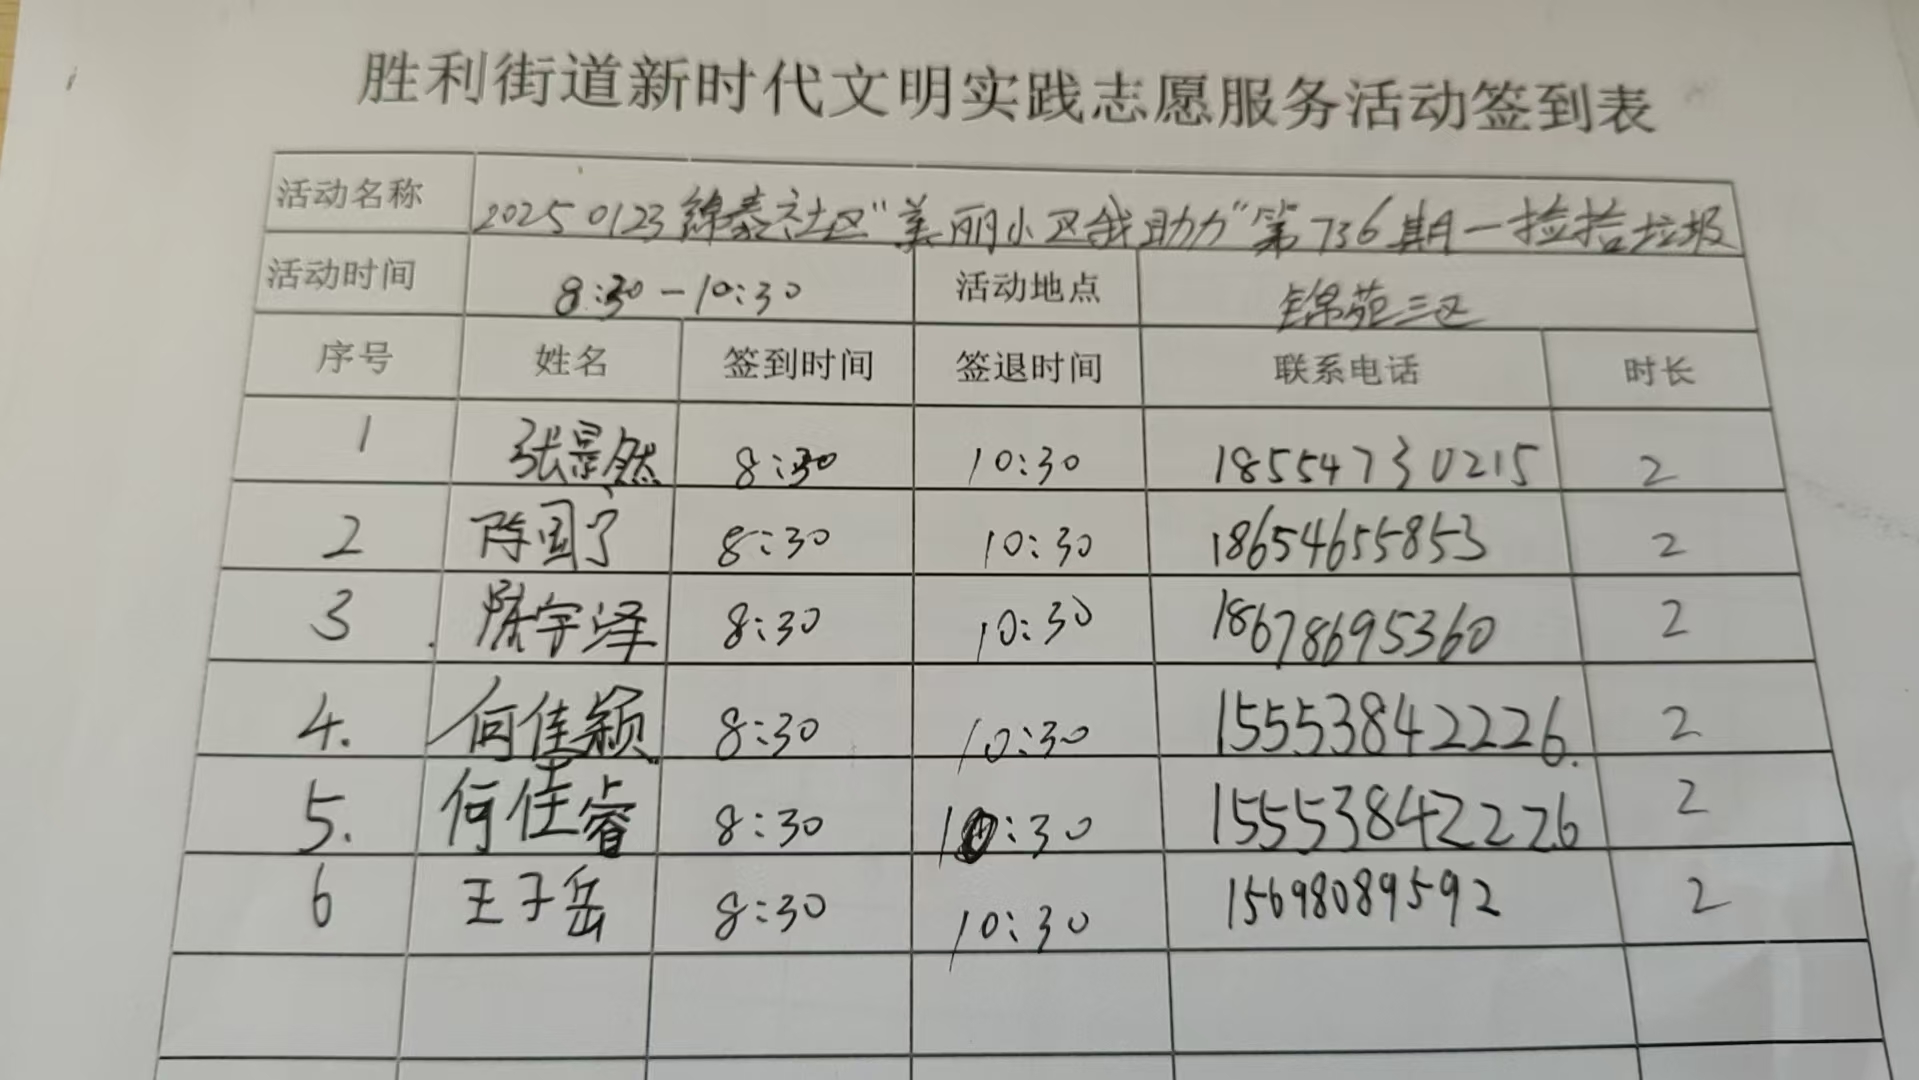 胜利街道新时代文明实践志愿服务活动签到表
活动名称 20250123锦泰社区"美丽小区我助力"第736期一捡拾垃圾
活动时间 8:30-10:30 活动地点 锦苑三区
序号 姓名 签到时间 签退时间 联系电话 时长
1 张景然 8:30 10:30 18554730215 2
2 陈国宁 8:30 10:30 18654655853 2
3 陈宇泽 8:30 10:30 18678695360 2
4. 何佳颖 8:30 10:30 15553842226. 2
5. 何佳睿 8:30 10:30 15553842226 2
6 王子岳 8:30 10:30 15698089592 2